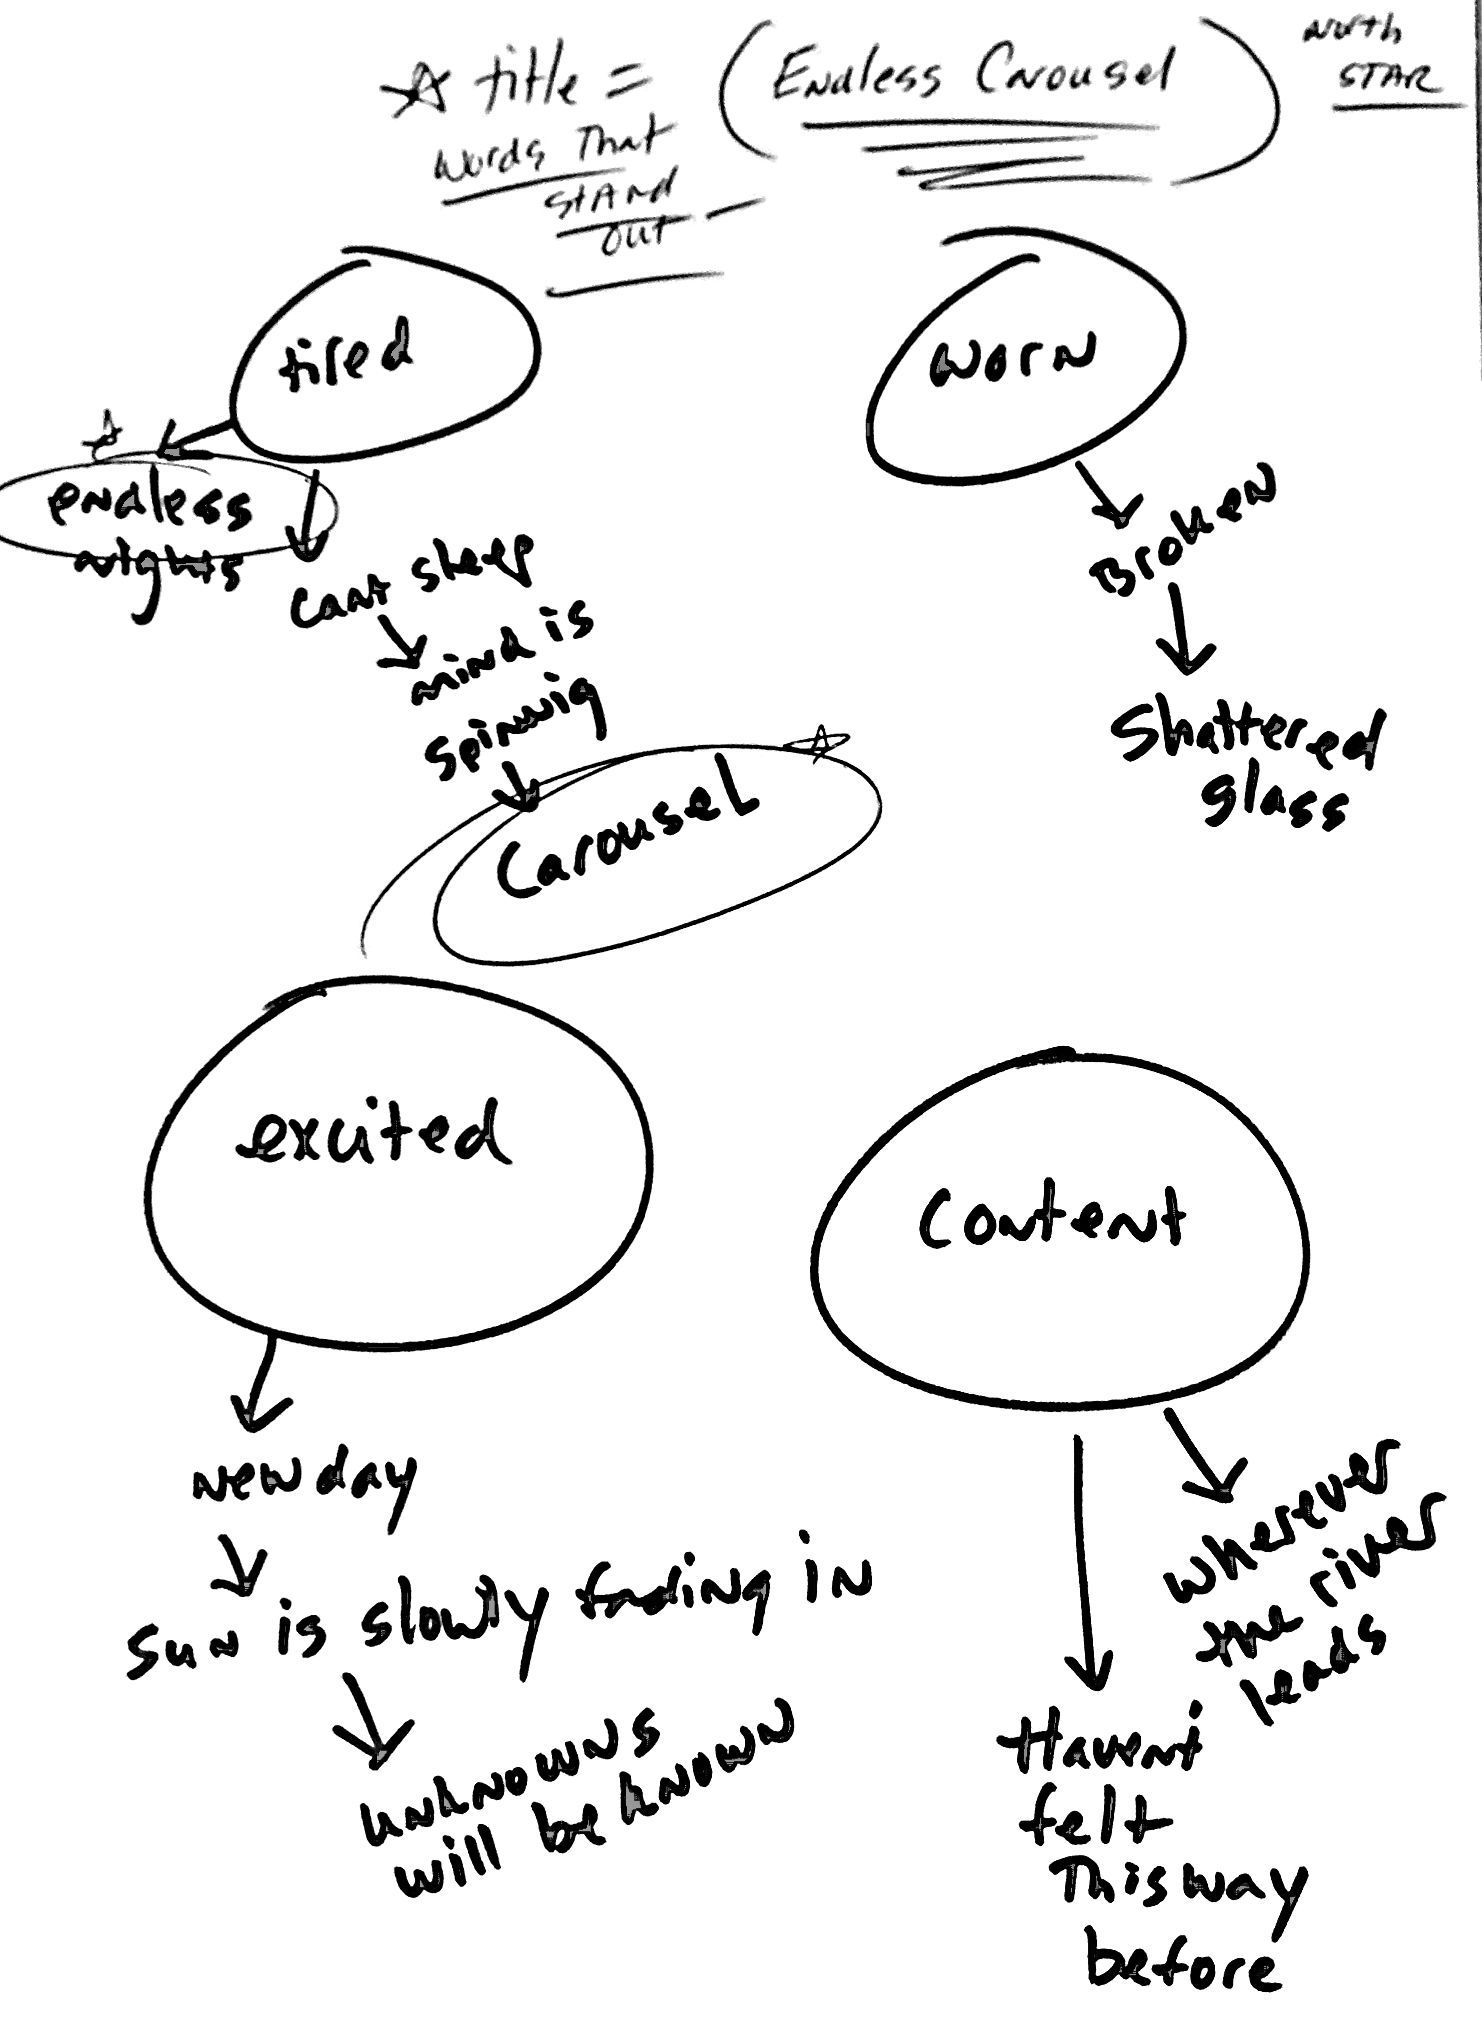 title = (Endless Carousel)
north
STAR
words That
stAnd
out
tired
worn
endless
nights
Cant sleep
mind is
spinnig
Carousel
Broken
Shattered
glass
excited
Content
new day
Sun is slowly fading in
unknowns
will be known
wherever
the river
leads
Havent
felt
This way
before